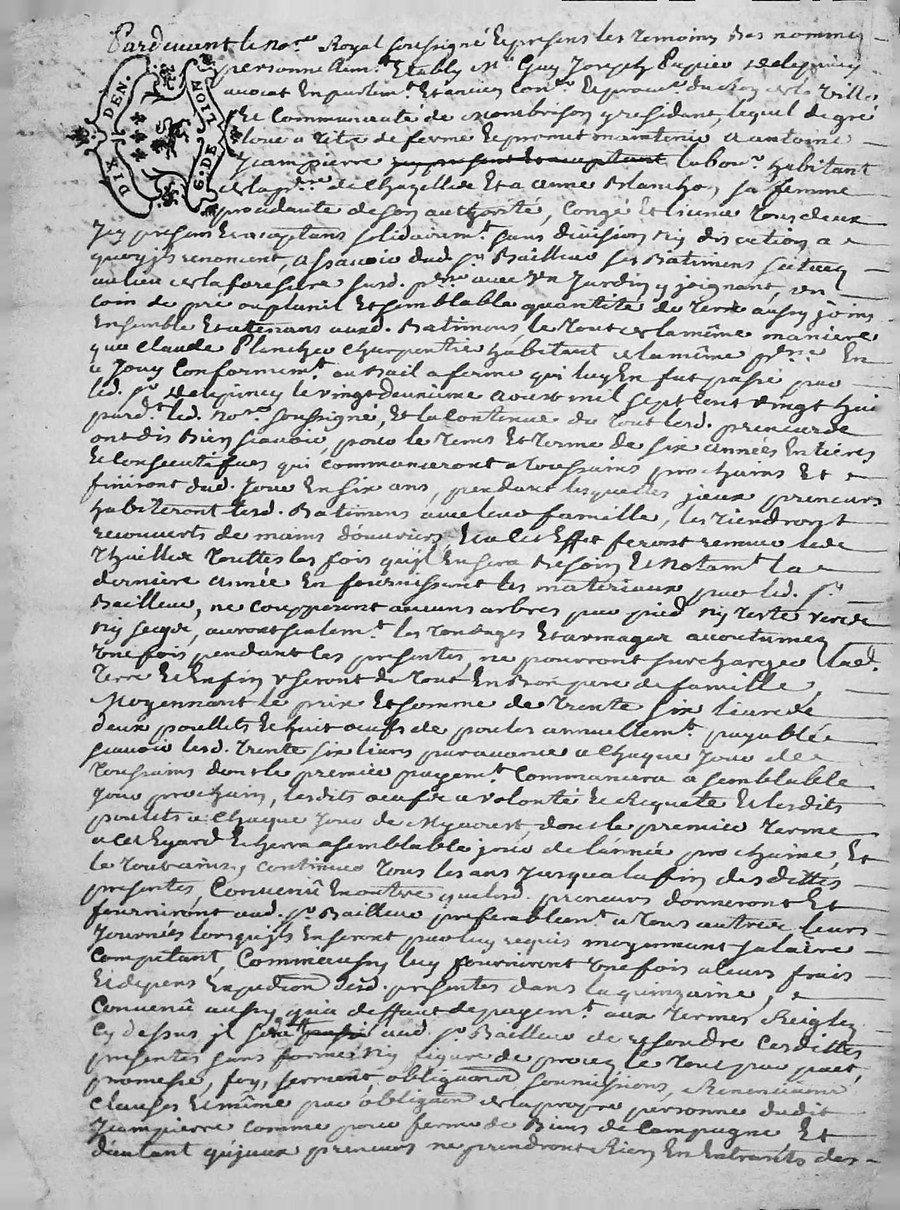 Pardevant le no.re Royal soussigné Et presens les temoins bas nommez
personnellem.t Etably M.e Guy Joseph Pupier delepiney
avocat En parlem.t Et ancien con.er Et procu.r du Roy de la ville
Et Communauté de Monbrison y residant, lequel de gré
loue a titre de ferme Et promet maintenir a antoine
Jeampierre labou.r habitant
de la p.sse de Chazelle Et a anne Blanchon, sa femme
procedante de son authorité, Congé Et licence tous deux
Icy presens Et acceptans solidairem.t sans division Ny discution a
quoy ils renoncent, a scavoir dud. s.r Bailleur ses Batimens scituez
au lieu de la foresure susd. p.sse avec Un Jardin y joignant, un
coin de pré ou plunil Et semblable quantité de terre aussy joins
Ensemble Et attenans auxd. Batimens, le tout de la même maniere
que Claude Planchet charpentier habitant de la même p.sse En
a Jouy Conformem.t au Bail a ferme qui luy En fut passé par
led. s.r delepiney le vingt deuxieme aoust mil sept cent vingt huit
pard.t led. No.re soussigné, Et la contenue du tout lesd. preneurs
ont dit Bien scavoir, pour le tems Et terme de six années Entieres
Et Consecutifues qui commanceront a toussains prochains Et
finiront dud. Jour En six ans, pendant lesquelles jceux preneurs
habiteront lesd. Batimens avec leur famille, les tiendront
recouverts de mains d'ouvriers, Et a cet Effet feront remuer le
thuille toutes les fois qu'il En sera Besoin Et notam.t la
derniere année En fournissant les materiaux par led. s.r
Bailleur, ne coupperont aucuns arbres par pied Ny teste verds
Ny secqs, auront seulem.t les tondages Et armages accoutumez
Une fois pendant les presentes, ne pourront surcharger lad.
terre Et Enfin useront du tout En Bon pere de famille,
Moyennant le prix Et somme de trente six livres
deux poullets Et huit oeufs de poules annuellem.t payable
scavoir lesd. trente six livres par avance a chaque Jour de
toussains dont le premier payem.t Commancera a semblable
Jour prochain, lesdits oeufs a volonté Et Requete Et lesdits
poulets a chaque Jour de My aoust, dont le premier terme
a cet Egard Echerra a semblable jour de l'année prochaine, Et
continuer tous les ans Jusqu'a la fin des dittes
presentes, Convenû En outre que lesd. preneurs donneront Et
fourniront aud. s.r Bailleur preferablem.t a tous autres leurs
Journées lorsqu'ils En seront par luy requis moyennant salaire
Competant, Comme aussy luy fourniront Une fois a leurs frais
Et depens Expedion desd. presentes dans la quinzaine,
Convenû aussy qu'a deffaut de payem.t aux termes Reiglez
Cy dessus il sera aud. s.r Bailleur de resoudre cesdittes
presentes sans forme Ny figure de procez le tout par pact,
promesse, foy, serment, obligaon soumissions, Renonciaons
Clauses Et même par obligaon de la propre personne dudit
Jeampierre comme pour ferme de Biens de Campagne Et
d'autant qu'jceux preneurs ne prendront Rien En Entrants des